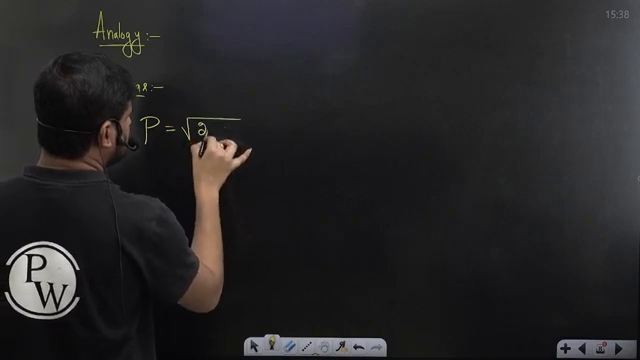 15:38
Analogy :-
P = √2
PW